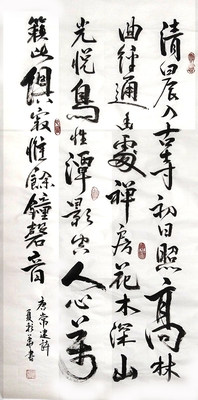 清晨入古寺初日照高林
曲徑通幽處禅房花木深山
光悦鳥性潭影空人心萬
籟此俱寂惟餘鐘磬音
唐常建詩